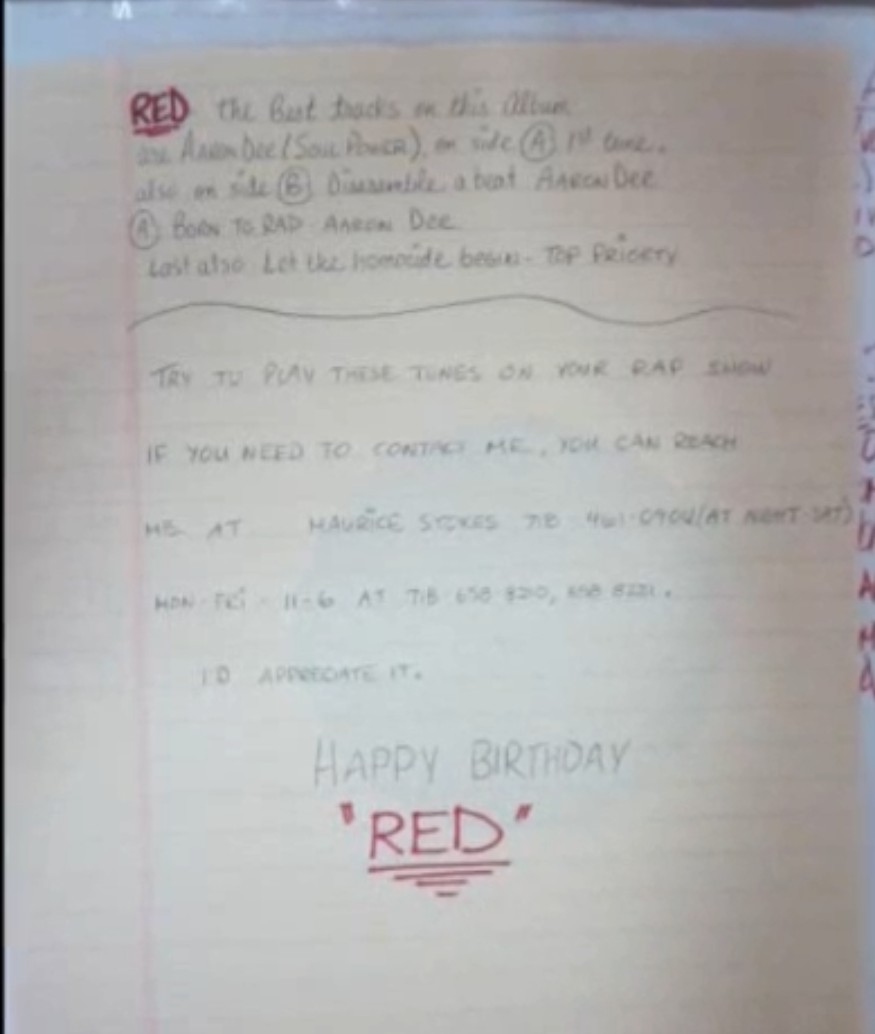 RED The Best tracks on this Album
are Aaron Dee (Soul Power), on side (A) 1st tune.
also on side (B) Dissemble a beat Aaron Dee
(A) Born to Rap Aaron Dee
Last also Let the homocide begin - Top Priorty
TRY TO PLAY THESE TUNES ON YOUR RAP SHOW
IF YOU NEED TO CONTACT ME, YOU CAN REACH
ME AT MAURICE STOKES 718 (AT NIGHT SAT)
MON-FRI - 11-6 AT 718 658
I'D APPRECIATE IT.
HAPPY BIRTHDAY
"RED"